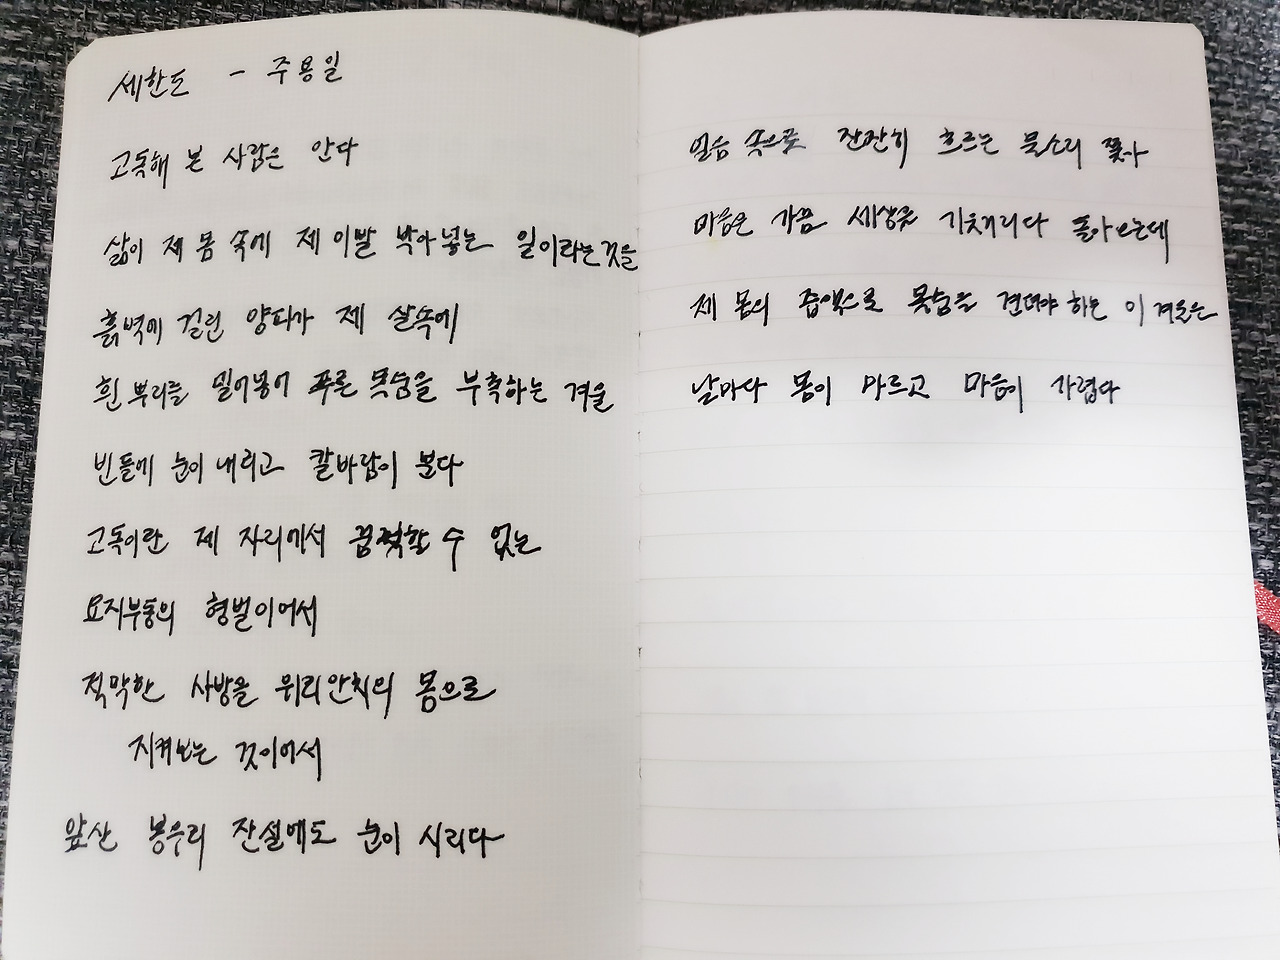 세한도 - 주용일
고독해 본 사람은 안다
삶이 제 몸 속에 제 이빨 박아 넣는 일이라는 것을
흙벽에 걸린 양파가 제 살 속에
흰 뿌리를 밀어넣어 푸른 목숨을 부축하는 겨울
빈들에 눈이 내리고 칼바람이 분다
고독이란 제 자리에서 꿈쩍할 수 없는
요지부동의 형벌이어서
적막한 사방을 위리안치의 몸으로
지켜보는 것이어서
앞산 봉우리 잔설에도 눈이 시리다
얼음 속으로 잔잔히 흐르는 물소리 쫓아
마음은 가끔 세상을 기웃거리다 돌아오는데
제 몸의 즙액으로 목숨을 견뎌야 하는 이 겨울은
날마다 몸이 마르고 마음이 가렵다